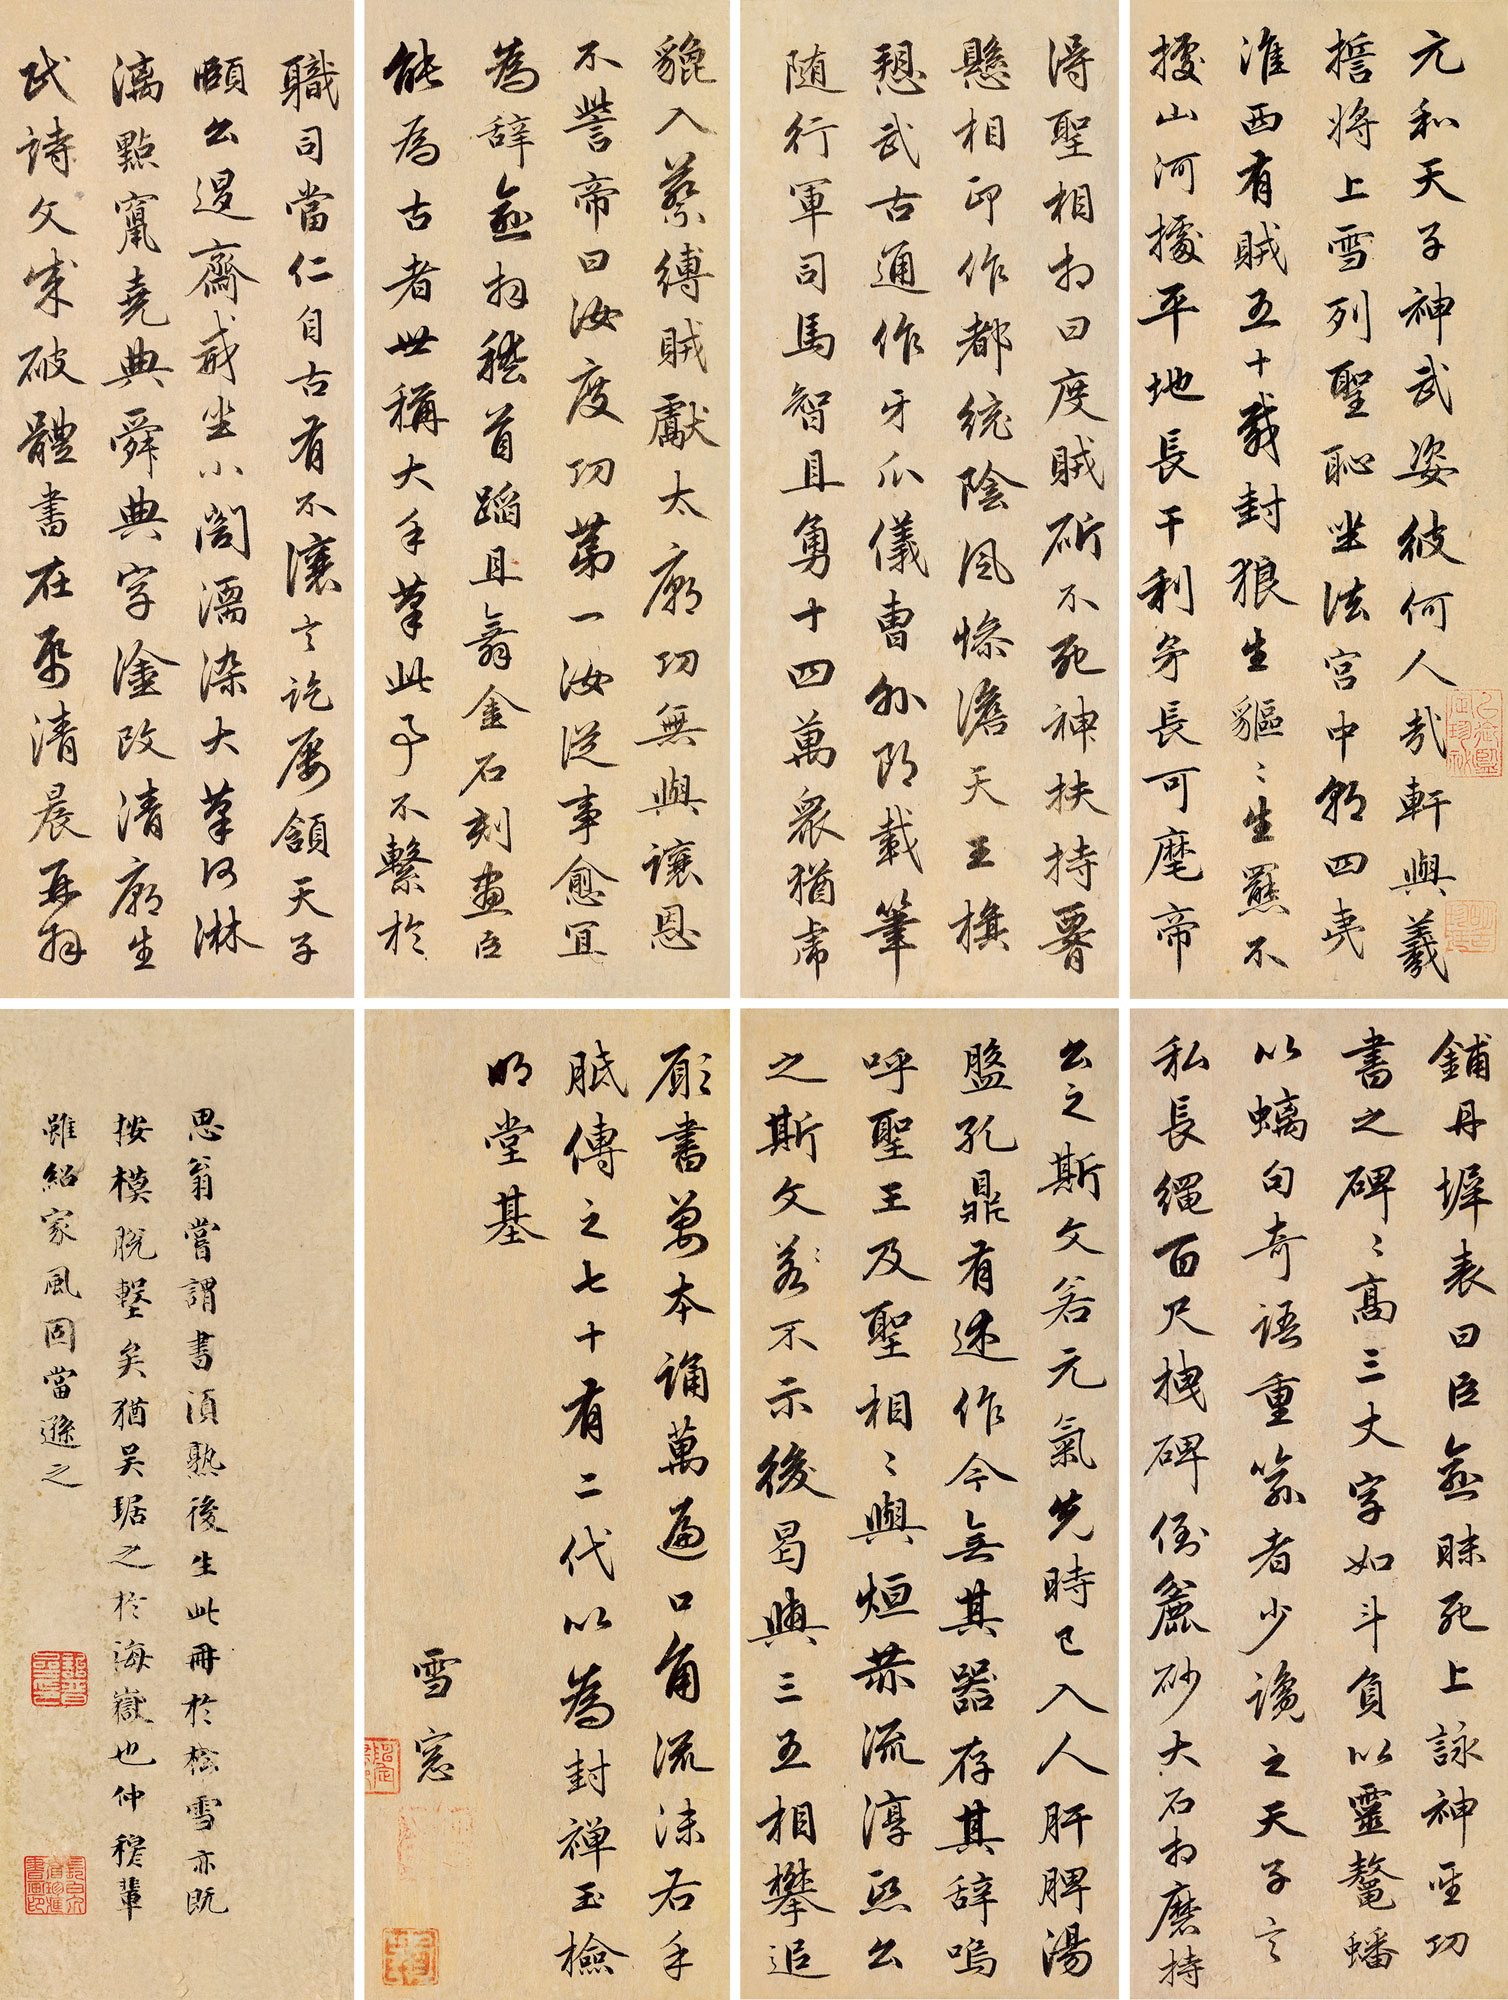 元和天子神武姿彼何人哉軒與羲
誓將上雪列聖恥坐法宮中朝四夷
淮西有賊五十載封狼生貙〻生羆不
據山河據平地長干利矛長可麾帝
得聖相相曰度賊斫不死神扶持要
懸相印作都統陰風慘澹天王旗
愬武古通作牙爪儀曹外郎載筆
隨行軍司馬智且勇十四萬眾猶虎
貔入蔡縛賊獻太廟功無與讓恩
不訾帝曰汝度功第一汝從事愈宜
為辭愈拜稽首蹈且舞金石刻畫臣
能為古者世稱大手筆此事不繫於
職司當仁自古有不讓言訖屢頷天子
頤公退齋戒坐小閤濡染大筆何淋
漓點竄堯典舜典字塗改清廟生
民詩文成破體書在紙清晨再拜
鋪丹墀表曰臣愈昧死上詠神聖功
書之碑〻高三丈字如斗負以靈鼇蟠
以螭句奇語重喻者少讒之天子言
私長繩百尺拽碑倒麤砂大石相磨持
公之斯文若元氣先時已入人肝脾湯
盤孔鼎有述作今無其器存其辭嗚
呼聖王及聖相〻與烜赫流淳熙公
之斯文若不示後曷與三五相攀追
願書萬本誦萬遍口角流沫右手
胝傳之七十有二代以為封禪玉檢
明堂基
雪窓
思翁嘗謂書須熟後生此冊於松雪亦既
按模脫墼矣猶吳琚之於海嶽也仲穆輩
雖紹家風固當遜之